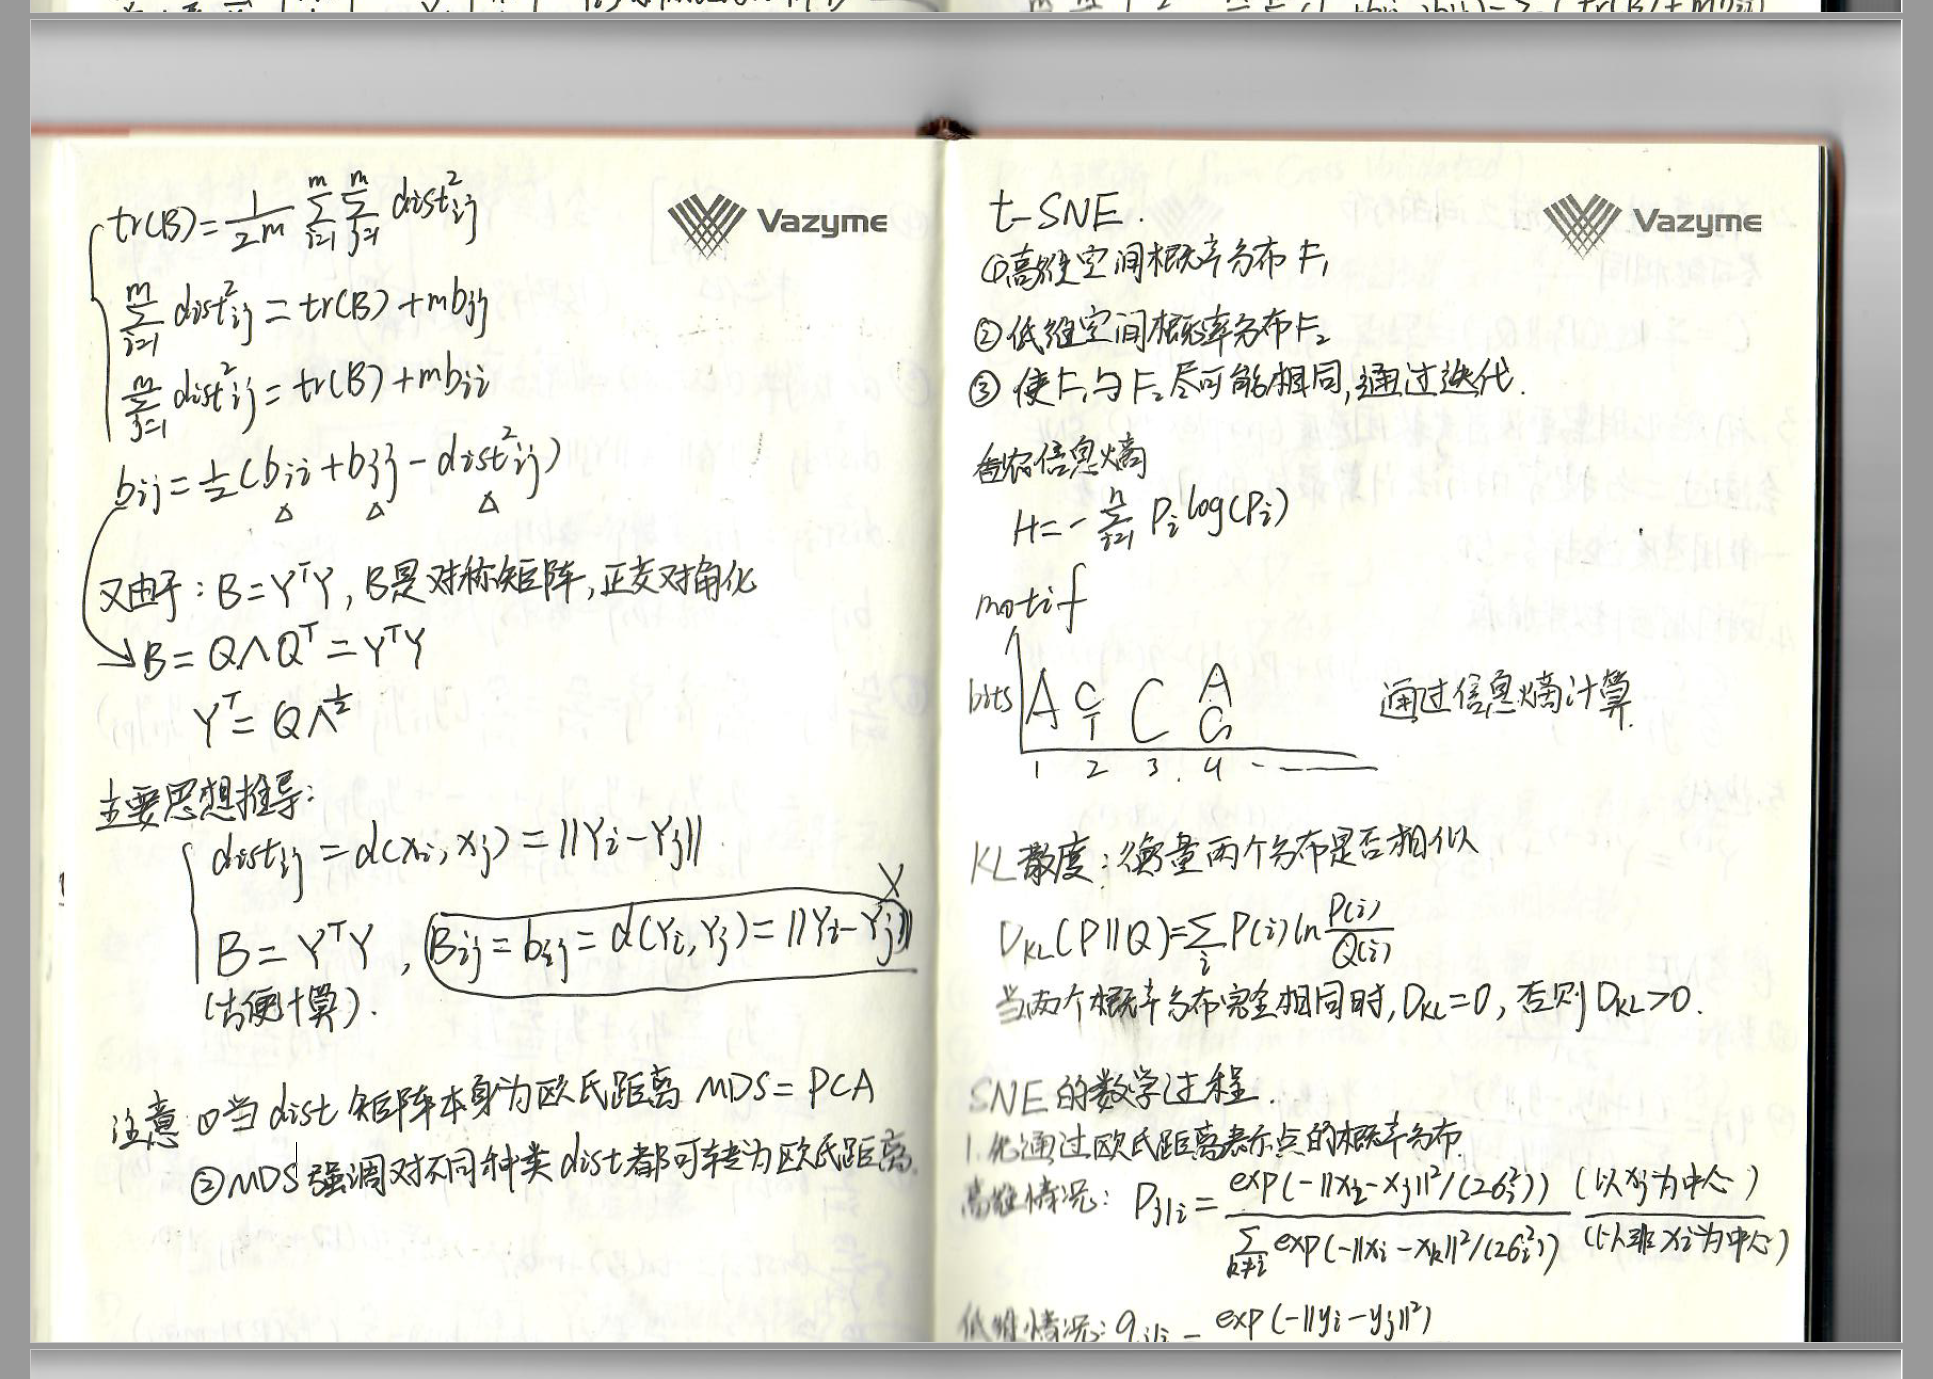 tr(B) = 1/2m ∑(i=1→m) ∑(j=1→m) dist²ij
∑(i=1→m) dist²ij = tr(B) + mbjj
∑(j=1→m) dist²ij = tr(B) + mbii
bij = 1/2 (bii + bjj - dist²ij)
△ △ △
又由于: B = YᵀY, B是对称矩阵, 正交对角化
B = QΛQᵀ = YᵀY
Yᵀ = QΛ^½
主要思想推导:
distij = d(xi, xj) = ||Yi - Yj||
X
B = YᵀY, Bij = bij = d(Yi, Yj) = ||Yi - Yj||
(方便计算).
注意 ①当 dist 矩阵本身为欧氏距离 MDS = PCA
②MDS 强调对不同种类 dist 都可转为欧氏距离.
Vazyme
t-SNE.
①高维空间概率分布 F₁
②低维空间概率分布 F₂
③ 使 F₁与 F₂ 尽可能相同, 通过迭代.
香农信息熵
H = - ∑(i=1→n) Pi log(Pi)
motif
bits A C T C A G 通过信息熵计算.
1 2 3. 4 - —
KL 散度: 衡量两个分布是否相似
DKL(P||Q) = ∑i P(i) ln P(i)/Q(i)
当两个概率分布完全相同时, DKL = 0, 否则 DKL > 0.
SNE 的数学过程.
1. 先通过欧氏距离表示点的概率分布.
高维情况: Pj|i = exp(-||xi - xj||²/(2σi²)) / ∑k≠i exp(-||xi - xk||²/(2σi²)) (以 xj 为中心) / (以非 xi 为中心)
低维情况: qj|i = exp(-||yi - yj||²)
Vazyme